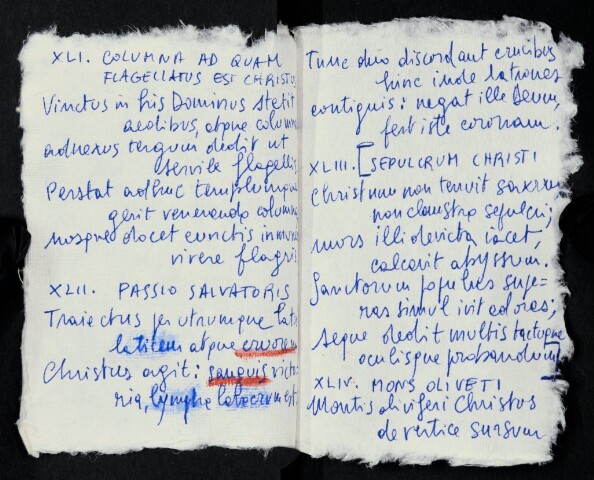 XLI. COLUMNA AD QUAM
FLAGELLATUS EST CHRISTUS
Vinctus in his Dominus stetit
aedibus, atque columna
adnexus tergum dedit ut
servile flagellis
Perstat adhuc templumque
gerit veneranda columna
nosque docet cunctis inmunes
vivere flagris
XLII. PASSIO SALVATORIS
Traiectus per utrumque latus
laticem atque cruorem
Christus agit: sanguis victo
ria, lympha lavacrum est
Tunc duo discordant crucibus
hinc inde latrones
contiguis: negat ille Deum,
fert iste coronam.
XLIII. [SEPULCRUM CHRISTI
Christum non tenuit saxum
non claustra sepulcri;
mors illi devicta iacet,
calcavit abyssum.
Sanctorum populus supe=
ras simul ivit ad oras;
seque dedit multis tactuque
oculisque probandum]
XLIV. MONS OLIVETI
Montis oliviferi Christus
de vertice sursum